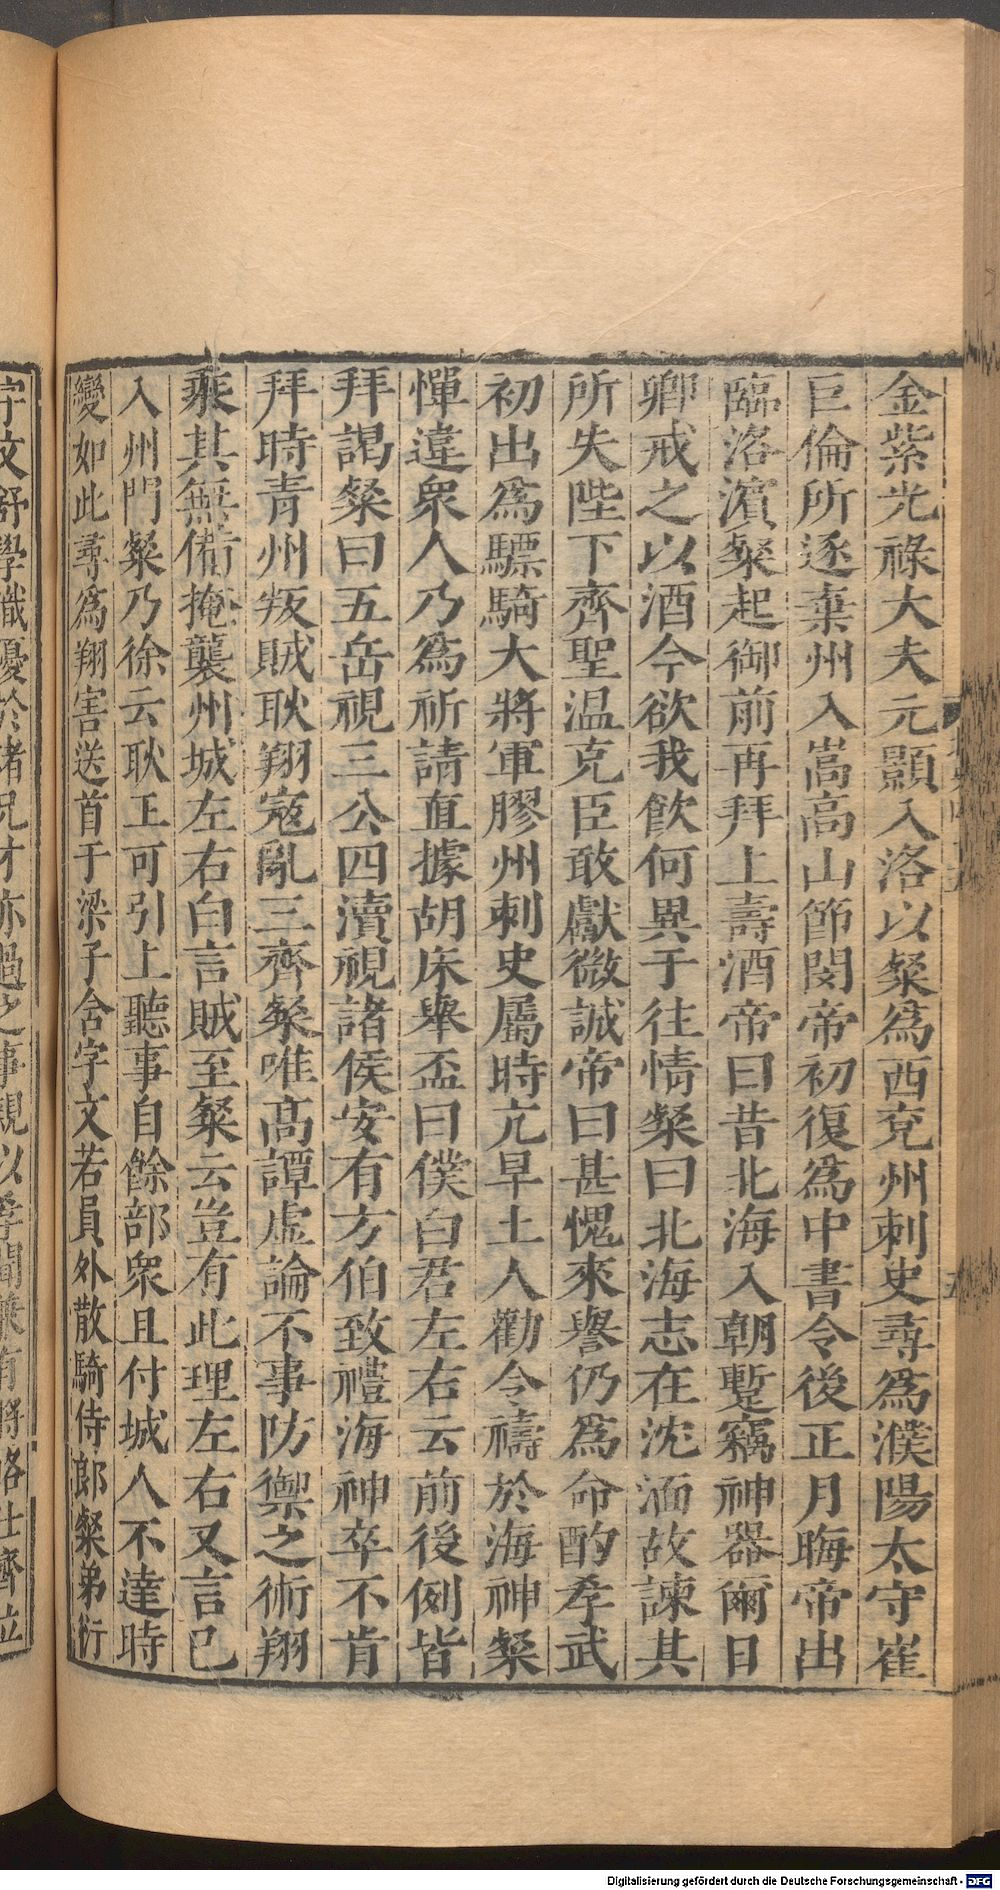 金紫光祿大夫元顥入洛以粲爲西兗州刺史尋爲濮陽太守崔
巨倫所逐棄州入嵩高山節閔帝初復爲中書令後正月晦帝出
臨洛濱粲起御前再拜上壽酒帝曰昔北海入朝蹔竊神器爾日
卿戒之以酒今欲我飲何異于往情粲曰北海志在沈湎故諫其
所失陛下齊聖温克臣敢獻微誠帝曰甚愧來譽仍爲命酌孝武
初出爲驃騎大將軍膠州刺史屬時亢旱土人勸令禱於海神粲
憚違衆人乃爲祈請直據胡床舉盃曰僕白君左右云前後例皆
拜謁粲曰五岳視三公四瀆視諸侯安有方伯致禮海神卒不肯
拜時青州叛賊耿翔寇亂三齊粲唯高譚虛論不事防禦之術翔
乘其無備掩襲州城左右白言賊至粲云豈有此理左右又言已
入州門粲乃徐云耿王可引上聽事自餘部衆且付城人不達時
變如此尋爲翔害送首于梁子含字文若員外散騎侍郎粲弟衍
字文舒學識優於諸兄才亦過之事親以孝聞兼有將略仕齊位
Digitalisierung gefördert durch die Deutsche Forschungsgemeinschaft - DFG